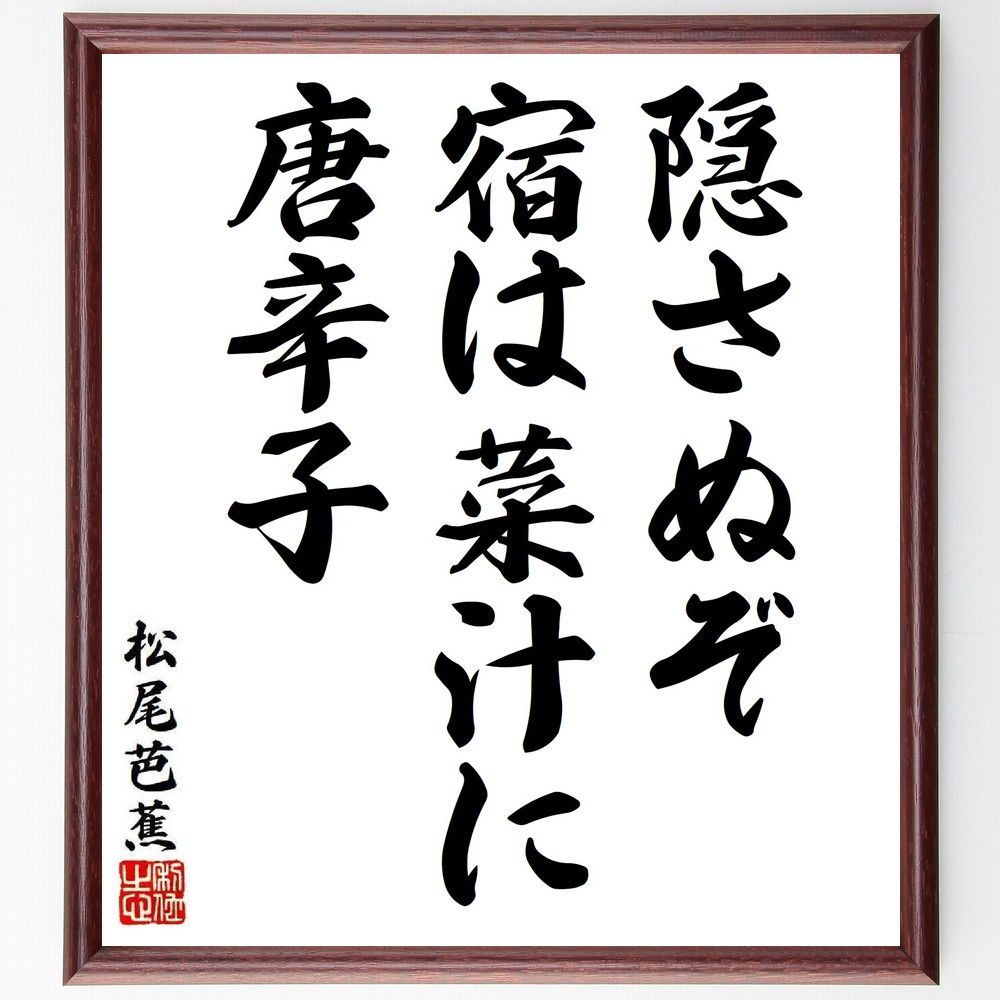 隠さぬぞ
宿は菜汁に
唐辛子
松尾芭蕉